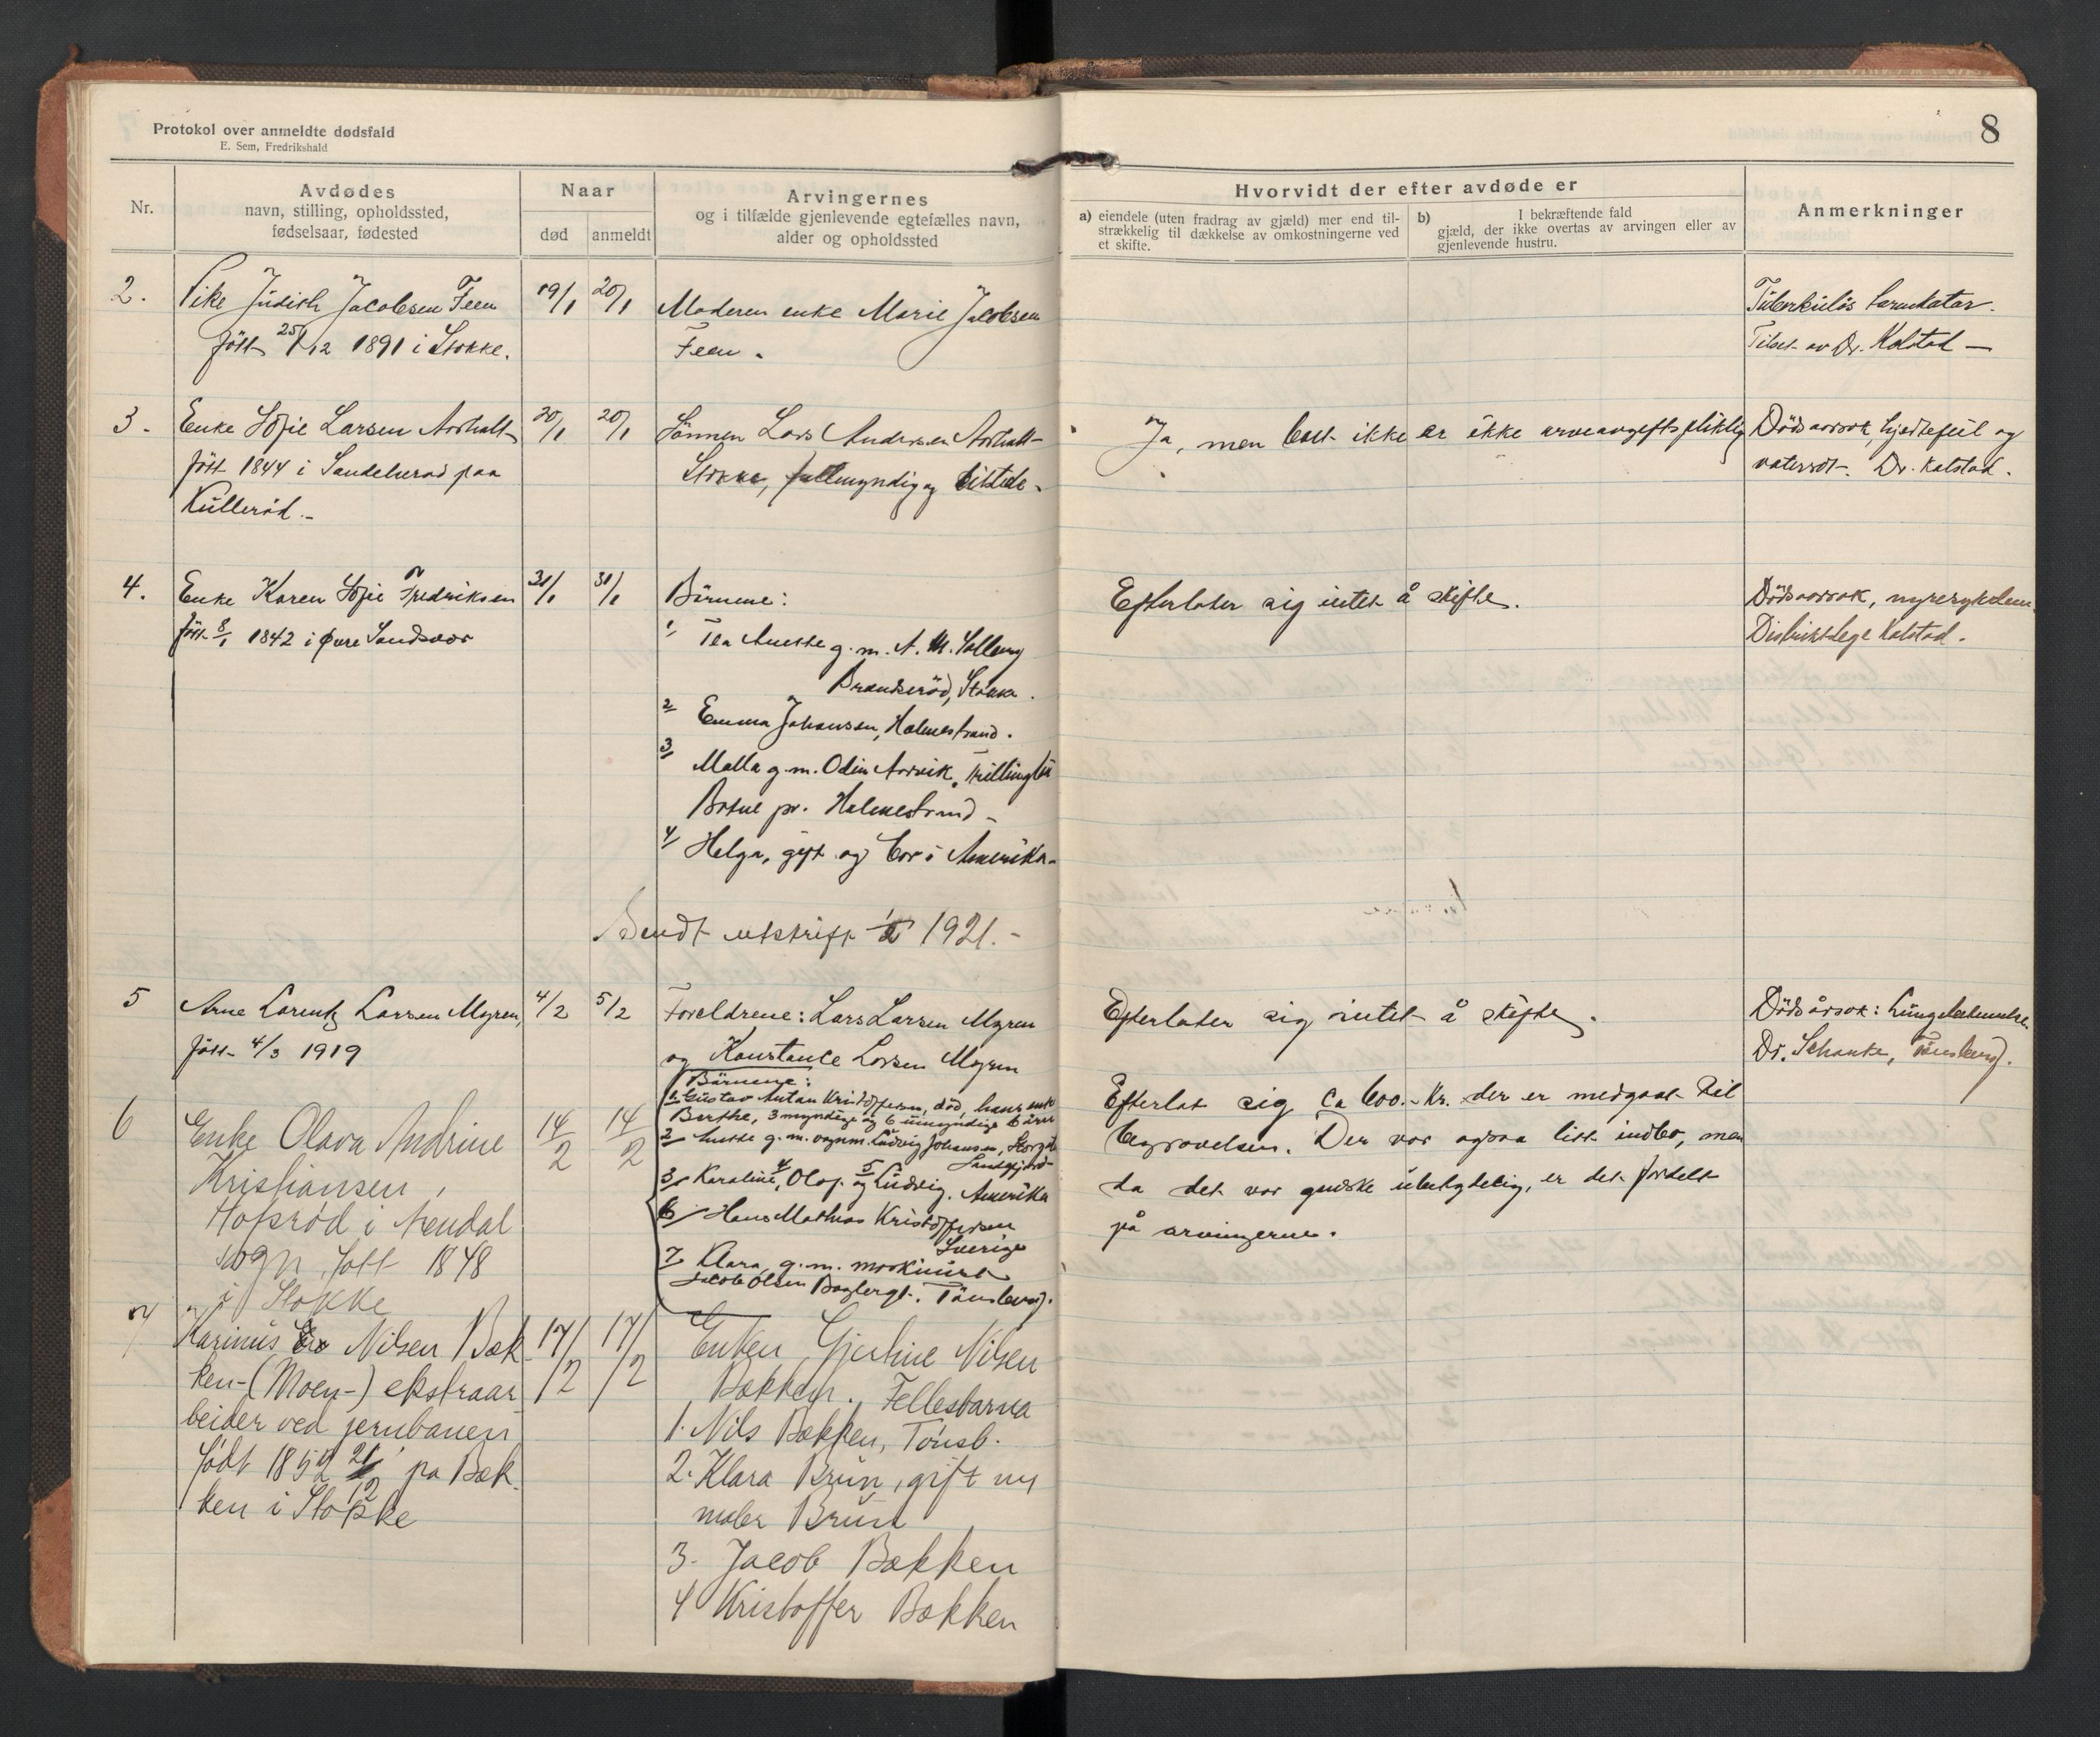 Protokol over anmeldte dødsfald
E. Sem, Fredrikshald
8
Nr.
Avdødes
navn, stilling, opholdssted,
fødselsaar, fødested
Naar
død
anmeldt
Arvingernes
og i tilfælde gjenlevende egtefælles navn,
alder og opholdssted
Hvorvidt der efter avdøde er
a) eiendele (uten fradrag av gjæld) mer end til-
strækkelig til dækkelse av omkostningerne ved
et skifte.
b) I bekræftende fald
gjæld, der ikke overtas av arvingen eller av
gjenlevende hustru.
Anmerkninger
2.
Pike Judith Jacobsen Feen
født 25/12 1891 i Stokke.
19/1
20/1
Moderen enke Marie Jacobsen
Feen.
Tuberkuløs tarmkatar.
Dr. Kolstad —
3.
Enke Sofie Larsen
født 1844 i Sandeherad paa
Kullerød.-
20/1
20/1
Sønnen Lars Andersen
Stokke, fullmyndig og tilstede.
Ja, men boet ikke er ikke arveavgiftspliktig
Dødsaarsak, hjertefeil og
vatersot. Dr. Kolstad.
4.
Enke Karen Sofie Fredriksen
født 8/1 1842 i Øvre Sandsvær
31/1
31/1
Børnene:
1/ Tea Anette g. m. A. M. Solberg
Brunserød, Stokke.
2 Emma Johansen, Holmestrand.
3 Malla g. m. Odin Aarvik,
Botne pr. Holmestrand -
4/ Helga, gift og bor i Amerika-
Sendt utskrift 1/2 1921.-
Efterlater sig intet å skifte.
Dødsaarsak, nyresykdom
Distriktslege Kolstad.
5
Arne Lorentz Larsen Myren,
født 4/3 1919
4/2
5/2
Foreldrene: Lars Larsen Myren
og Konstance Larsen Myren
Efterlater sig intet å skifte.
Dødsårsak: Lungebetennelse.
Dr. Schanke, Tønsberg.
6
Enke Olava Andrine
Kristiansen,
Hoksrød i Arendal
sogn, født 1848
i Stokke
14/2
14/2
Børnene:
1. Gustav Antan Kristoffersen, død, hans enke
Berthe, 3 myndige og 6 umyndige
2 Anette g. m. vognm. Ludvig Johansen, Storgt.
Sandefjord-
3, Karoline, 4 Olaf og 5 Ludvig, Amerika
6/ Hans Mathias Kristoffersen
Sverige
7 Klara, g. m. maskinist
Jacob Olsen Bagbergt. Tønsberg.
Efterlot sig ca 600.- Kr. der er medgaat til
begravelsen. Der var ogsaa litt indbo, men
da det var ganske ubetydelig, er det fordelt
på arvingerne.
7
Karinus Nilsen Bæk
ken-(Moen-) ekstraar
beider ved jernbanen
født 1852 21/12 pa Bæk
ken i Stokke
17/2
17/2
Enken Gjertine Nilsen
Bækken. Fellesbarna
1. Nils Bækken, Tønsb.
2. Klara Brun, gift m
maler Brun
3. Jacob Bækken
4 Kristoffer Bækken